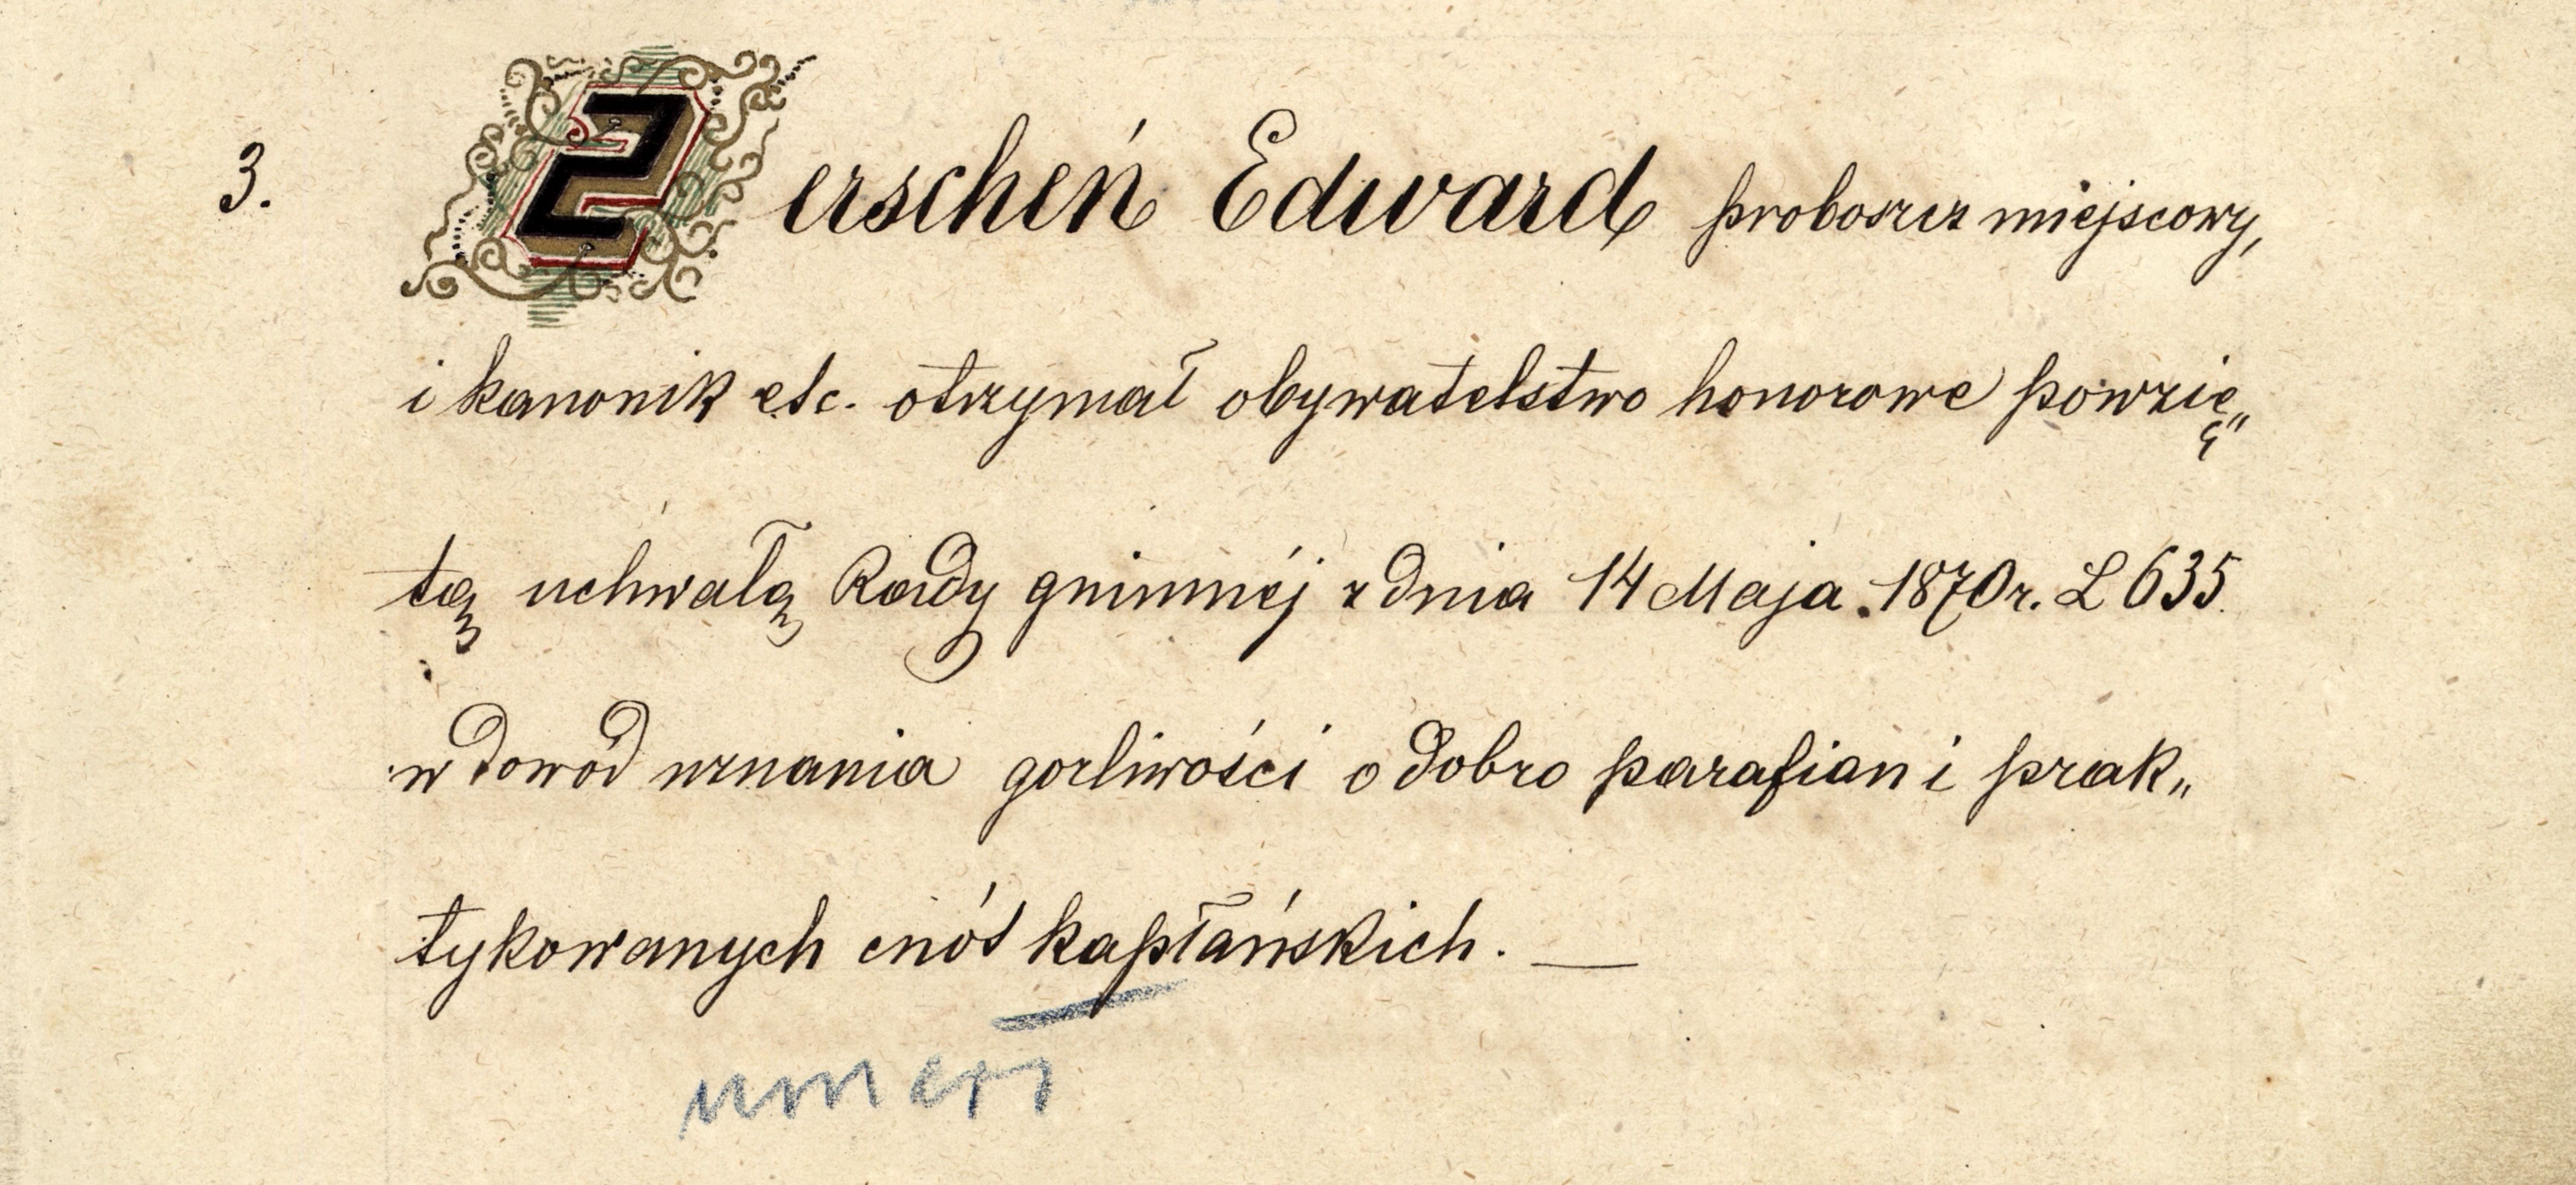 3. Zerscheń Edward proboszcz miejscowy,
i kanonik etc. otrzymał obywatelstwo honorowe powzię„
tą uchwałą Rady gminnéj z dnia 14 Maja 1870 r. L 635.
w dowód uznania gorliwości o dobro parafian i prak„
tykowanych cnót kapłańskich. —
umarł